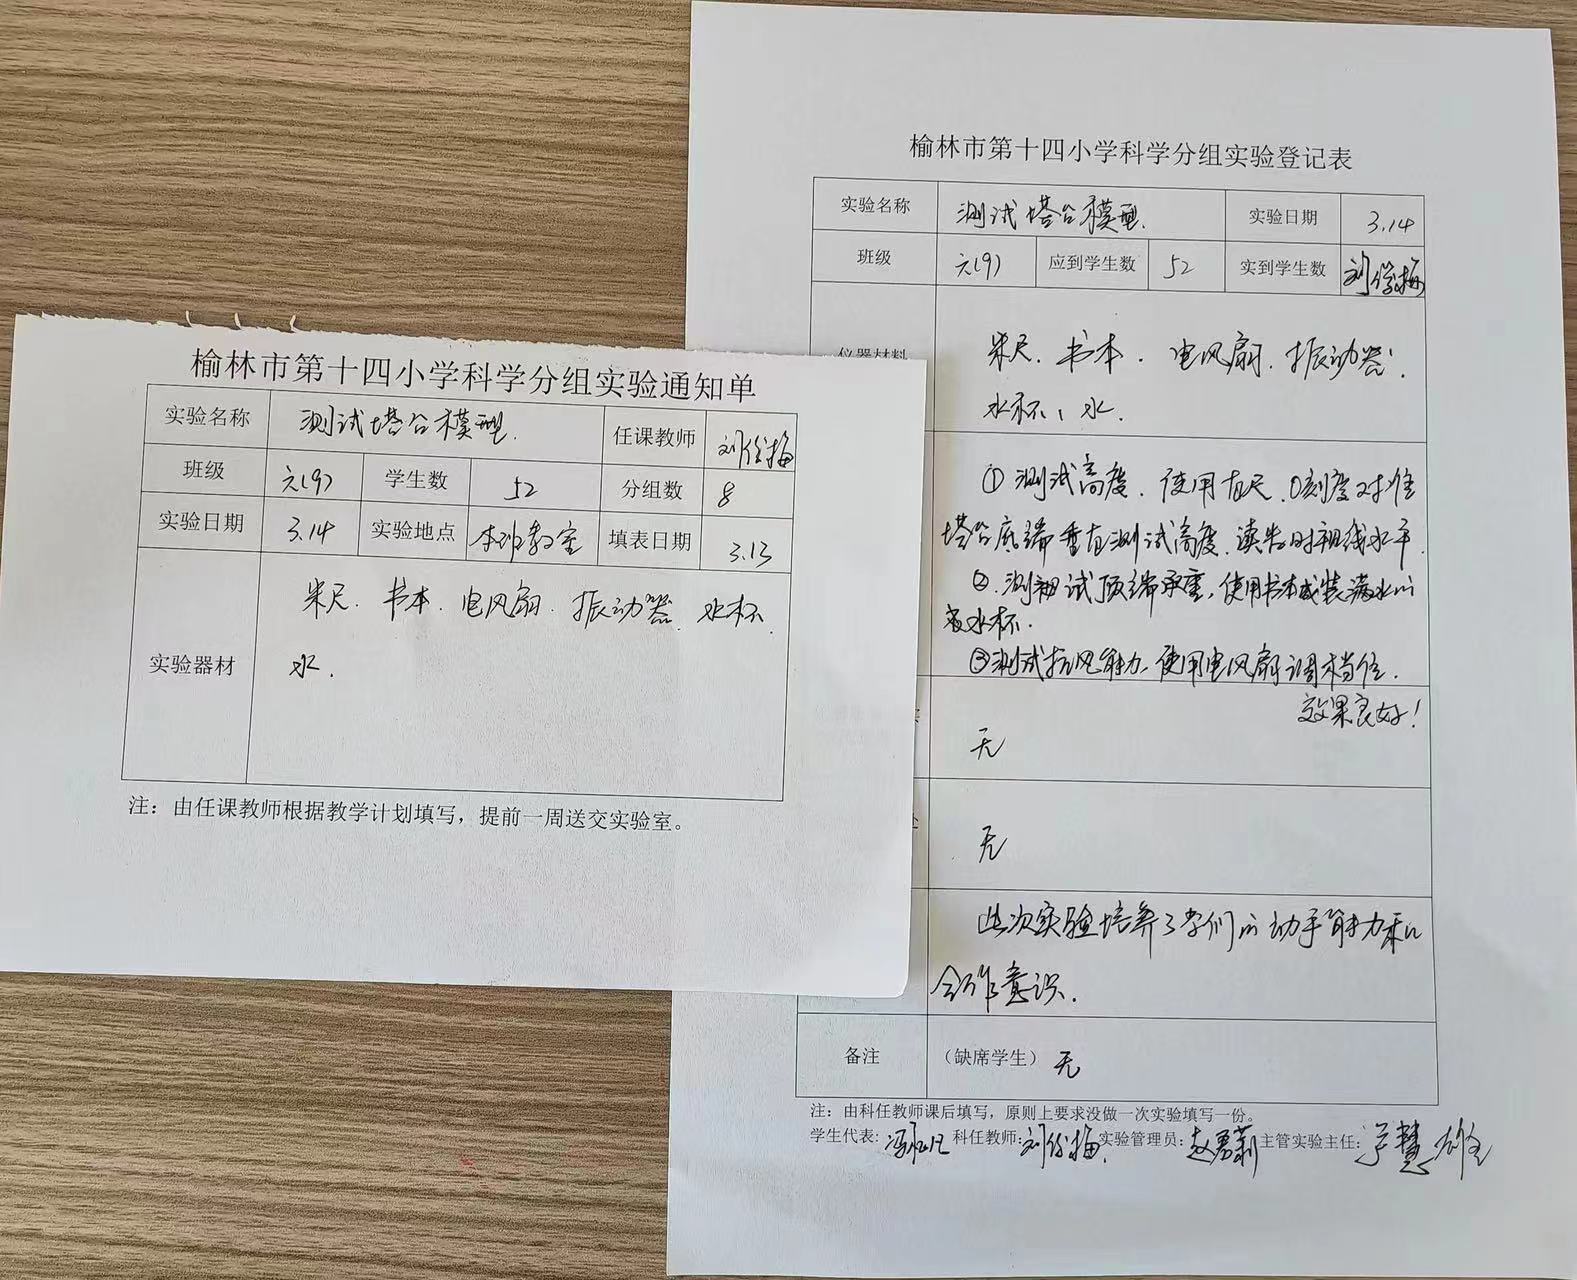 榆林市第十四小学科学分组实验通知单
实验名称 测试塔台模型. 任课教师
班级 六(9) 学生数 52 分组数 8
实验日期 3.14 实验地点 本班教室 填表日期 3.13
实验器材 米尺. 书本. 电风扇. 振动器. 水杯.
水.
注：由任课教师根据教学计划填写，提前一周送交实验室。
榆林市第十四小学科学分组实验登记表
实验名称 测试塔台模型. 实验日期 3.14
班级 六(9) 应到学生数 52 实到学生数
仪器材料 米尺. 书本. 电风扇. 振动器.
水杯、水.
①测试高度. 使用直尺. 0刻度对准
塔台底端垂直测试高度. 读数时视线水平.
②.测试顶端承重, 使用书本或装满水的
水杯.
③测试抗风能力. 使用电风扇调档位.
效果良好!
无
无
此次实验培养了学们的动手能力和
合作意识.
备注 （缺席学生） 无
注：由科任教师课后填写，原则上要求没做一次实验填写一份。
学生代表: 科任教师: 实验管理员: 主管实验主任: